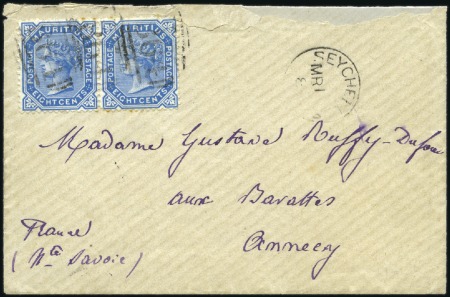 MAURITIUS MAURITIUS
POSTAGE POSTAGE POSTAGE POSTAGE
EIGHT CENTS EIGHT CENTS
SEYCHEL
MR 1
Madame Gustave Ruffy-Dufour
aux Barattes
Annecy
France
(Hte Savoie)